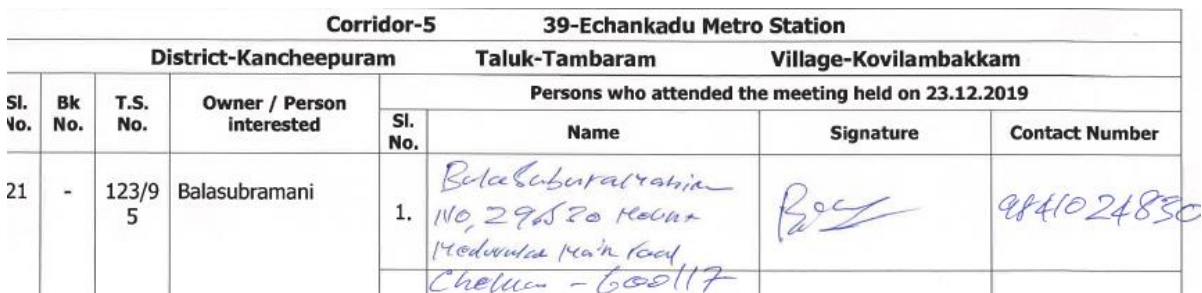 Corridor-5 39-Echankadu Metro Station
District-Kancheepuram Taluk-Tambaram Village-Kovilambakkam
Sl. No. Bk No. T.S. No. Owner / Person interested Persons who attended the meeting held on 23.12.2019
Sl. No. Name Signature Contact Number
21 - 123/95 Balasubramani 1. 9841024830
NO, 29&30
Main Road
- 600117